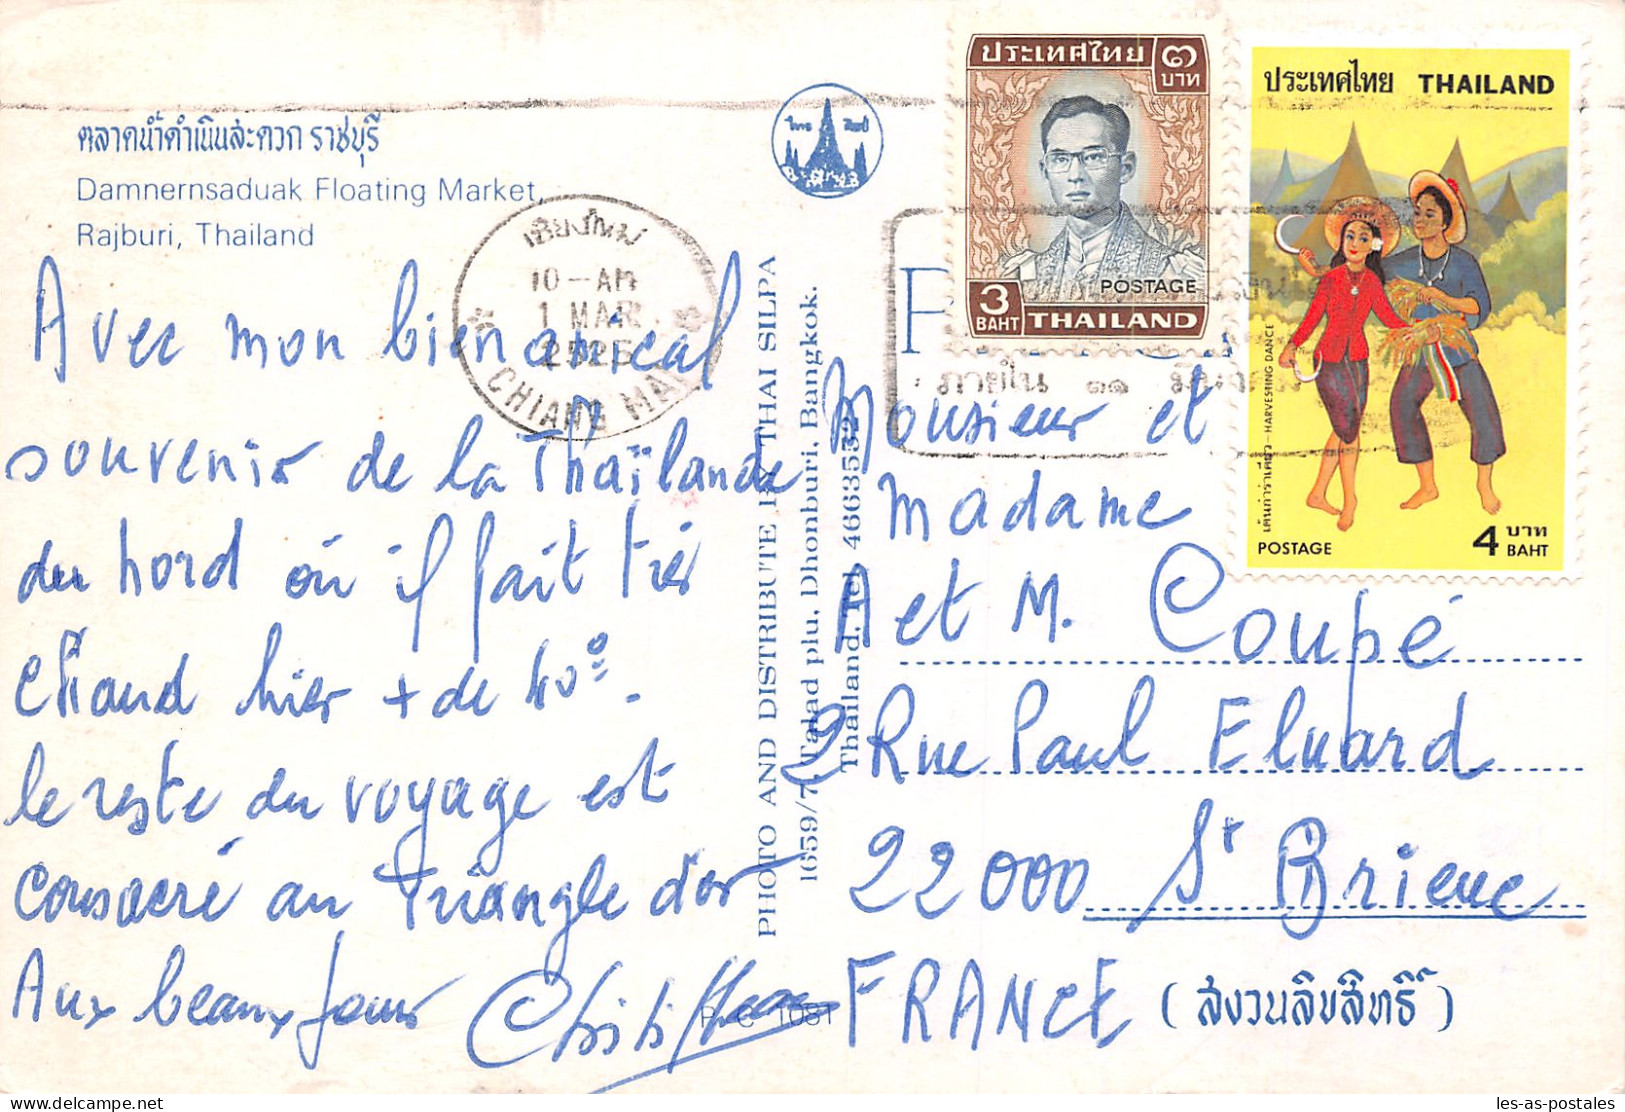 ตลาดน้ำดำเนินสะดวก ราชบุรี
Damnernsaduak Floating Market,
Rajburi, Thailand
ไทย ศิลป์
เชียงใหม่
10-AM
1 MAR
2526
CHIANG MAI
ประเทศไทย ๓ บาท
POSTAGE
3 BAHT THAILAND
ประเทศไทย THAILAND
เต้นกำรำเคียว-HARVESTING DANCE
POSTAGE
4 บาท BAHT
ภายใน ๓๑
Avec mon bien amical
souvenir de la Thaïlande
du Nord où il fait très
chaud hier + de 40° -
le reste du voyage est
consacré au Triangle d'or
Aux beaux jours
PHOTO AND DISTRIBUTE BY THAI SILPA
1659/7 Talad plu, Dhonburi, Bangkok.
Thailand. Tel. 4663552
P. C 1081
Monsieur et
Madame
A et M. Coupé
2 Rue Paul Eluard
22000 St Brieuc
FRANCE
(สงวนลิขสิทธิ์)
les-as-postales